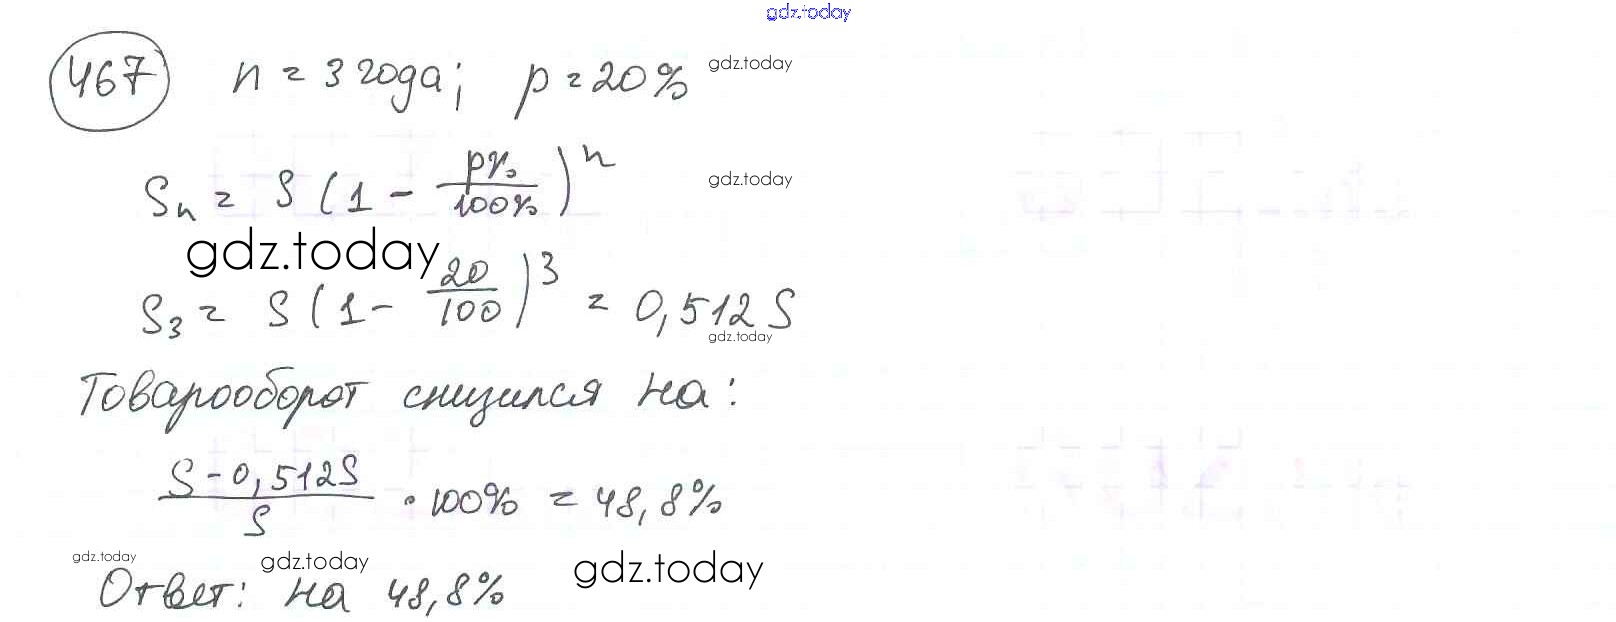 gdz.today
467 n = 3 года; p = 20% gdz.today
Sn = S (1 - p%/100%)^n gdz.today
gdz.today
S3 = S (1 - 20/100)^3 = 0,512 S
gdz.today
Товарооборот снизился на:
S - 0,512S / S · 100% = 48,8%
gdz.today gdz.today gdz.today
Ответ: на 48,8%